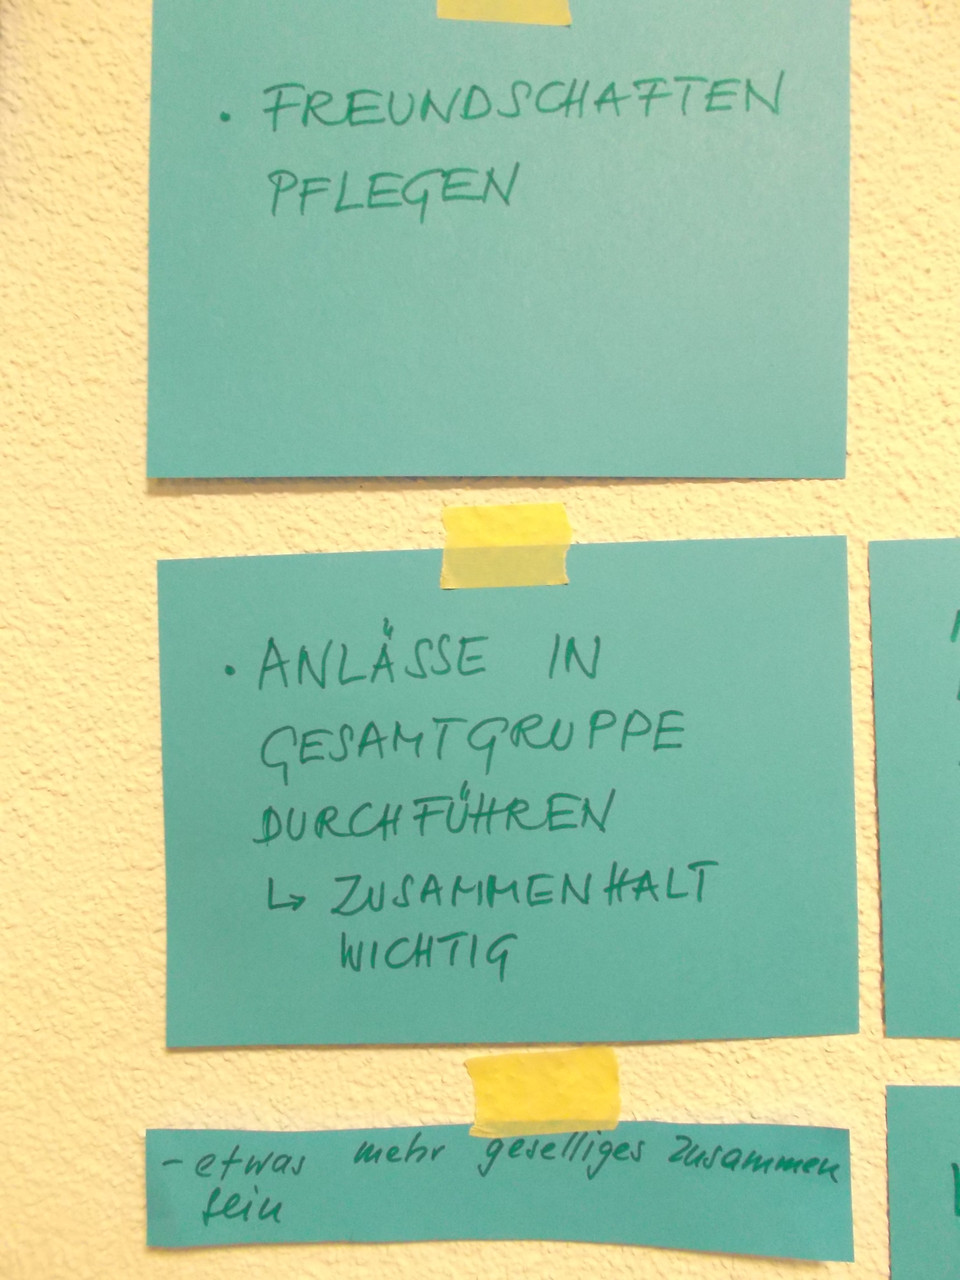 . FREUNDSCHAFTEN
PFLEGEN
. ANLÄSSE IN
GESAMTGRUPPE
DURCHFÜHREN
↳ ZUSAMMENHALT
WICHTIG
- etwas mehr geselliges zusammen
sein